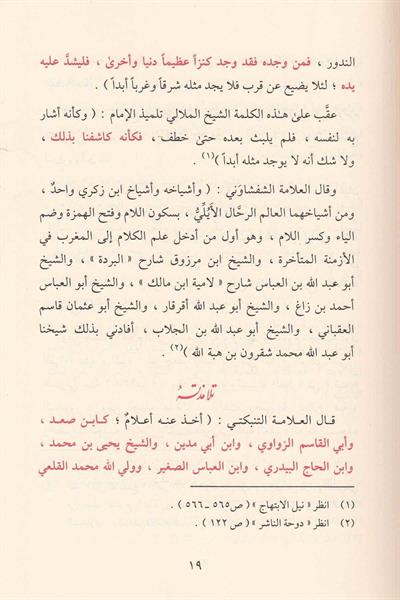 الندور ، فمن وجده فقد وجد كنزاً عظيماً دنيا وأخرىٰ ، فليشدَّ عليه
يده ؛ لئلا يضيع عن قرب فلا يجد مثله شرقاً وغرباً أبداً ) .
عقَّب علىٰ هـٰذه الكلمة الشيخ الملالي تلميذ الإمام : ( وكأنه أشار
به لنفسه ، فلم يلبث بعده حتىٰ خطف ، فكأنه كاشفنا بذلك ،
ولا شك أنه لا يوجد مثله أبداً )(١) .
وقال العلامة الشفشاوني : ( وأشياخه وأشياخ ابن زكري واحدٌ ،
ومن أشياخهما العالم الرحَّال الأَيُلِيُّ ، بسكون اللام وفتح الهمزة وضم
الياء وكسر اللام ، وهو أول من أدخل علم الكلام إلى المغرب في
الأزمنة المتأخرة ، والشيخ ابن مرزوق شارح « البردة » ، والشيخ
أبو عبد الله بن العباس شارح « لامية ابن مالك » ، والشيخ أبو العباس
أحمد بن زاغ ، والشيخ أبو عبد الله أقرقار ، والشيخ أبو عثمان قاسم
العقباني ، والشيخ أبو عبد الله بن الجلاب ، أفادني بذلك شيخنا
أبو عبد الله محمد شقرون بن هبة الله )(٢) .
تلامذته
قال العلامة التنبكتي : ( أخذ عنه أعلامٌ ؛ كـابن صعد ،
وأبي القاسم الزواوي ، وابن أبي مدين ، والشيخ يحيى بن محمد ،
وابن الحاج البيدري ، وابن العباس الصغير ، وولي الله محمد القلعي
(١) انظر « نيل الابتهاج » ( ص ٥٦٥ـ٥٦٦ ) .
(٢) انظر « دوحة الناشر » ( ص ١٢٢ ) .
١٩